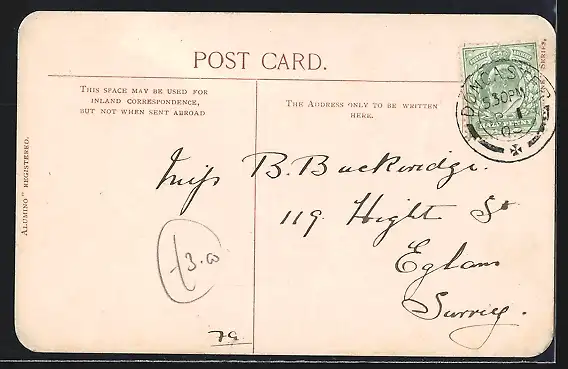 POST CARD.
THIS SPACE MAY BE USED FOR
INLAND CORRESPONDENCE,
BUT NOT WHEN SENT ABROAD
THE ADDRESS ONLY TO BE WRITTEN
HERE.
ALUMINO" REGISTERED.
SERIES,
DONCASTER
530PM
Miss B. Buckeridge.
119 Hight St
Eglam
Surrey.
£3.00